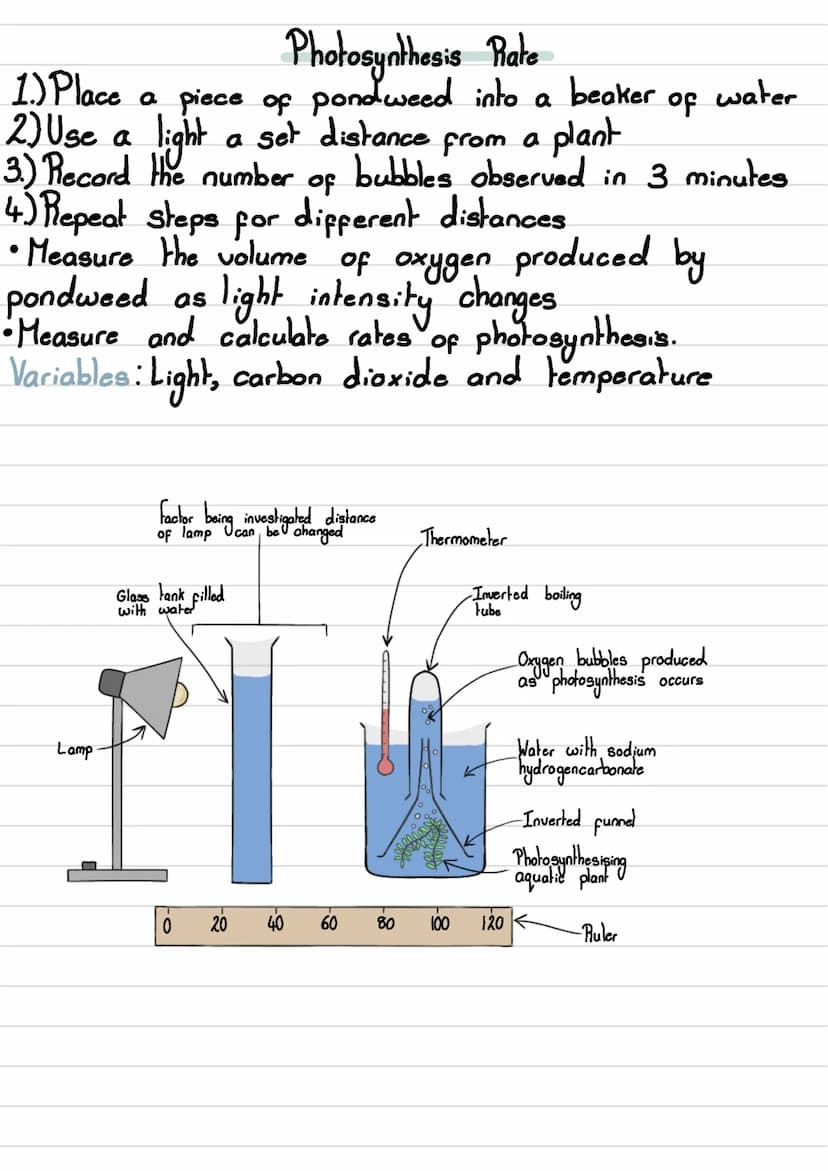 Photosynthesis Rate
1.) Place a piece of pondweed into a beaker of water
2) Use a light a set distance from a plant
3.) Record the number of bubbles observed in 3 minutes
4.) Repeat steps for different distances
• Measure the volume of oxygen produced by
pondweed as light intensity changes
• Measure and calculate rates of photosynthesis.
Variables: Light, carbon dioxide and temperature
factor being investigated distance
of lamp can be changed
Thermometer
Glass tank filled
with water
Inverted boiling
tube
Oxygen bubbles produced
as photosynthesis occurs
Lamp
Water with sodium
hydrogencarbonate
Inverted funnel
Photosynthesising
aquatic plant
0 20 40 60 80 100 120
Ruler